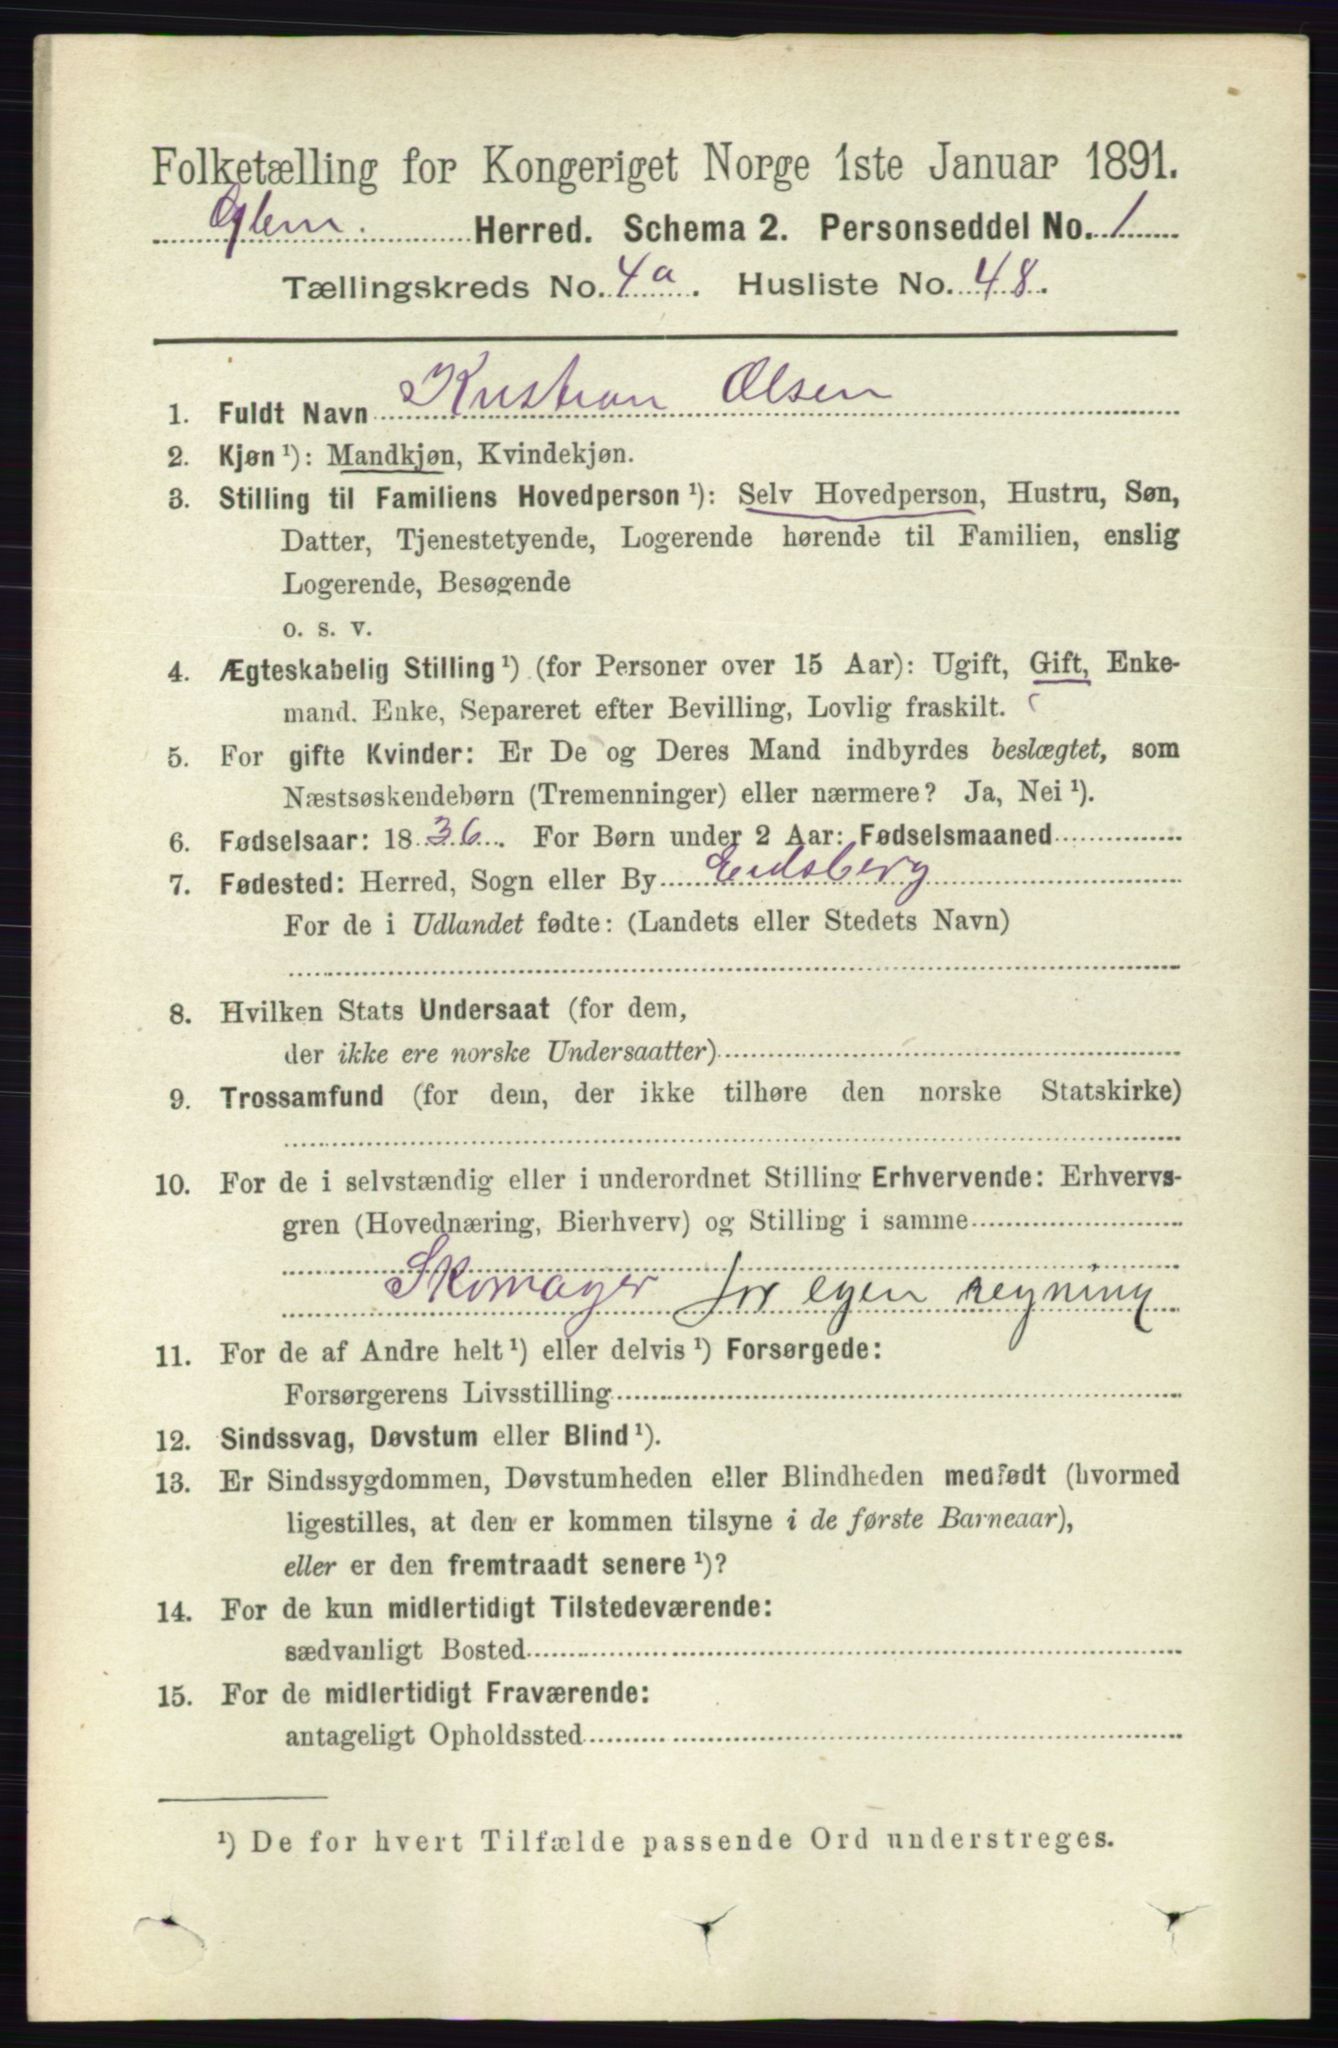 Folketælling for Kongeriget Norge 1ste Januar 1891.
Glem. Herred. Schema 2. Personseddel No. 1
Tællingskreds No. 4a. Husliste No. 48.
1. Fuldt Navn Kristian Olsen
2. Kjøn ¹): Mandkjøn, Kvindekjøn.
3. Stilling til Familiens Hovedperson ¹): Selv Hovedperson, Hustru, Søn,
Datter, Tjenestetyende, Logerende hørende til Familien, enslig
Logerende, Besøgende
o. s. v.
4. Ægteskabelig Stilling ¹) (for Personer over 15 Aar): Ugift, Gift, Enke-
mand. Enke, Separeret efter Bevilling, Lovlig fraskilt.
5. For gifte Kvinder: Er De og Deres Mand indbyrdes beslægtet, som
Næstsøskendebørn (Tremenninger) eller nærmere? Ja, Nei ¹).
6. Fødselsaar: 1836. For Børn under 2 Aar: Fødselsmaaned
7. Fødested: Herred, Sogn eller By Eidsberg
For de i Udlandet fødte: (Landets eller Stedets Navn)
8. Hvilken Stats Undersaat (for dem,
der ikke ere norske Undersaatter)
9. Trossamfund (for dem, der ikke tilhøre den norske Statskirke)
10. For de i selvstændig eller i underordnet Stilling Erhvervende: Erhvervs-
gren (Hovednæring, Bierhverv) og Stilling i samme
Skomager for egen regning
11. For de af Andre helt ¹) eller delvis ¹) Forsørgede:
Forsørgerens Livsstilling
12. Sindssvag, Døvstum eller Blind ¹).
13. Er Sindssygdommen, Døvstumheden eller Blindheden medfødt (hvormed
ligestilles, at den er kommen tilsyne i de første Barneaar),
eller er den fremtraadt senere ¹)?
14. For de kun midlertidigt Tilstedeværende:
sædvanligt Bosted
15. For de midlertidigt Fraværende:
antageligt Opholdssted
¹) De for hvert Tilfælde passende Ord understreges.